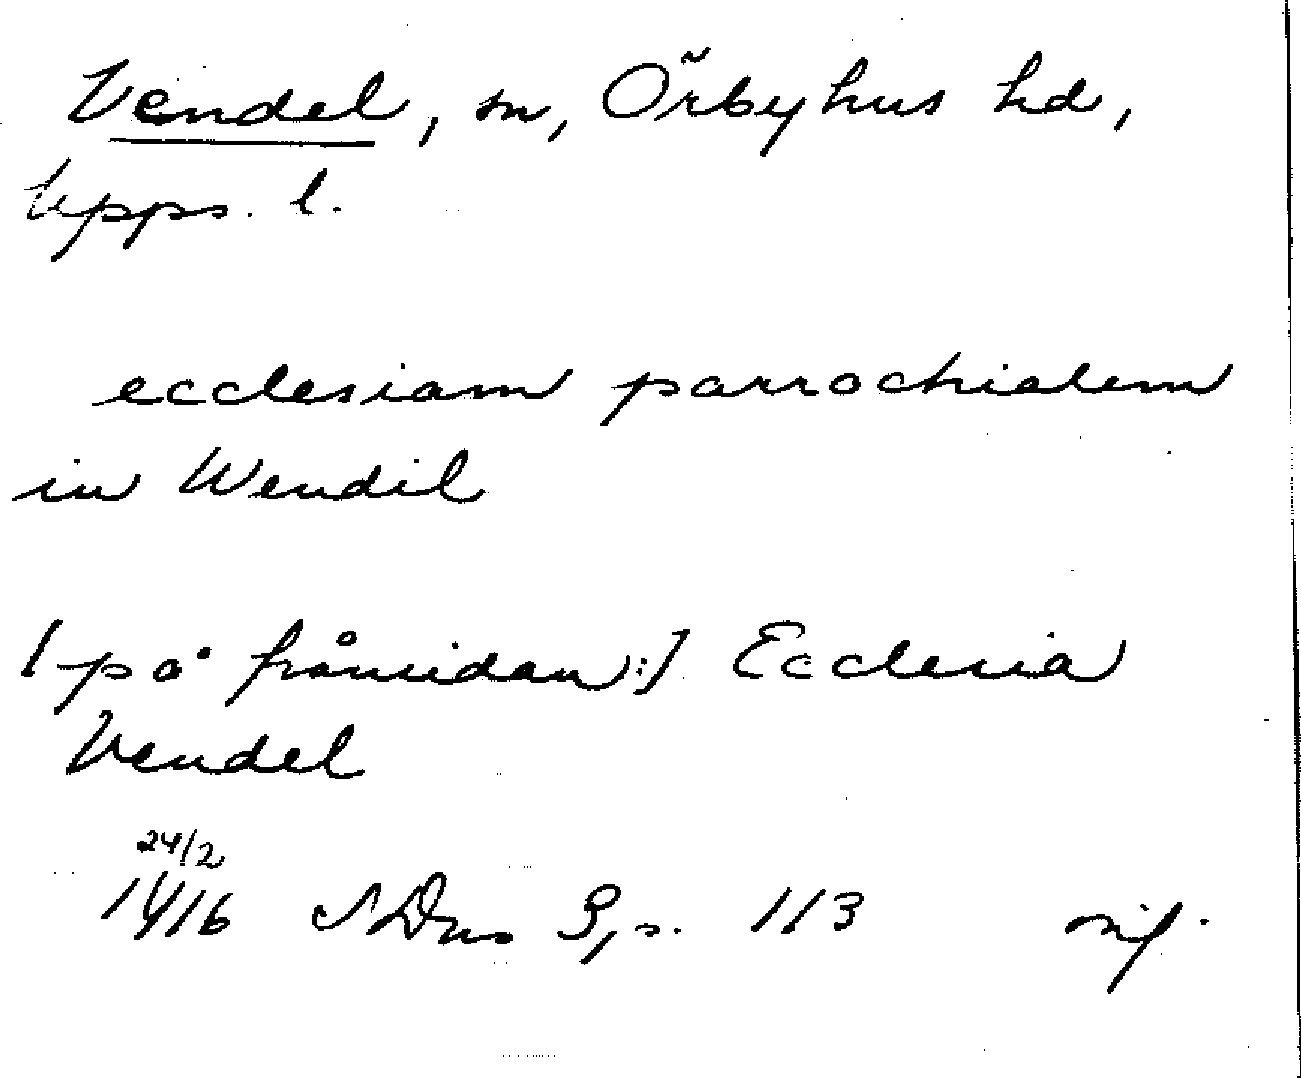 Vendel, sn, Örbyhus hd,
Upps. l.
ecclesiam parrochialem
in Wendil
[på fråmsidan:] Ecclesia
Vendel
24/2
1416 SDns 3, s. 113 orig.